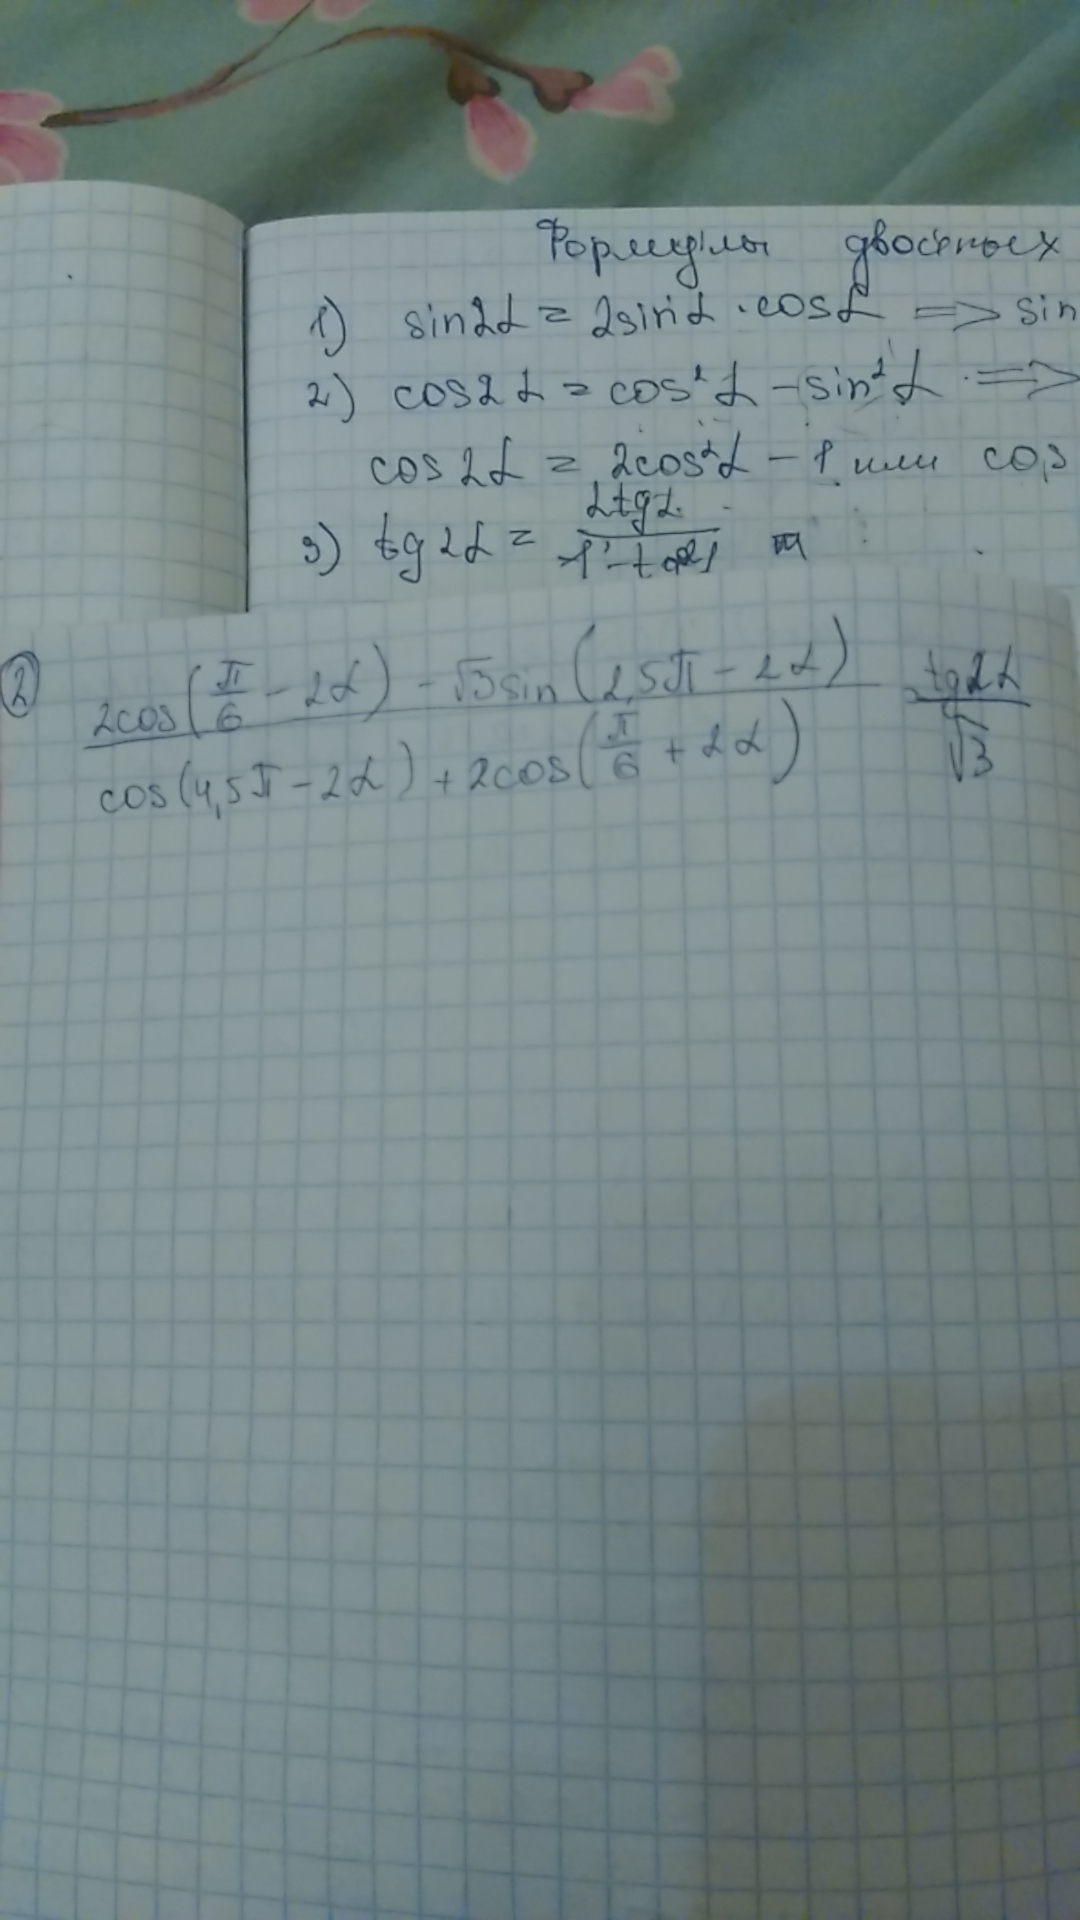 Формулы двойных
1) sin2α = 2sinα · cosα => sin
2) cos2α = cos²α - sin²α =>
cos2α = 2cos²α - 1 или cos
3) tg2α = 2tgα / 1 - tg²α
② 2cos(π/6 - 2α) - √3sin(2,5π - 2α) / cos(4,5π - 2α) + 2cos(π/6 + 2α) = tg2α / √3